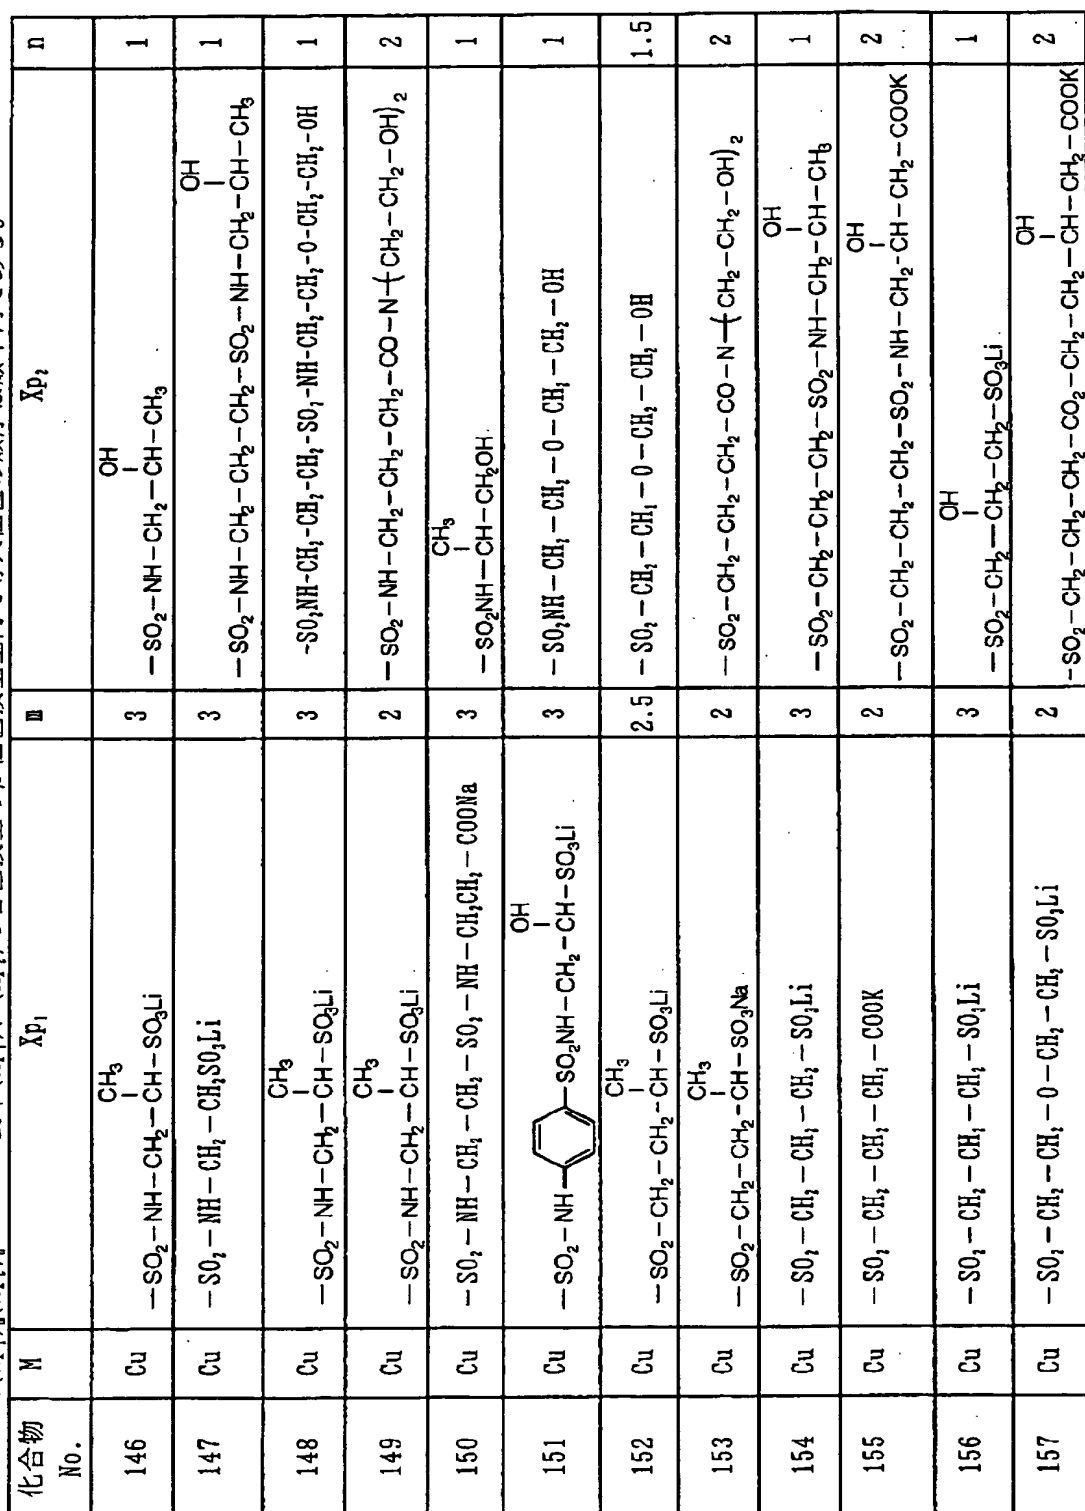 化合物 No. M Xp₁ m Xp₂ n
CH₃ OH
146 Cu —SO₂—NH—CH₂—CH—SO₃Li 3 —SO₂—NH—CH₂—CH—CH₃ 1
OH
147 Cu —SO₂—NH—CH₂—CH₂SO₃Li 3 —SO₂—NH—CH₂—CH₂—CH₂—SO₂—NH—CH₂—CH—CH₃ 1
CH₃
148 Cu —SO₂—NH—CH₂—CH—SO₃Li 3 -SO₂NH-CH₂-CH₂-CH₂-SO₂-NH-CH₂-CH₂-O-CH₂-CH₂-OH 1
CH₃
149 Cu —SO₂—NH—CH₂—CH—SO₃Li 2 —SO₂—NH—CH₂—CH₂—CH₂—CO—N—(CH₂—CH₂—OH)₂ 2
CH₃
150 Cu —SO₂—NH—CH₂—CH₂—SO₂—NH—CH₂CH₂—COONa 3 —SO₂NH—CH—CH₂OH 1
OH
151 Cu —SO₂—NH— —SO₂NH—CH₂—CH—SO₃Li 3 —SO₂NH—CH₂—CH₂—O—CH₂—CH₂—OH 1
CH₃
152 Cu —SO₂—CH₂—CH₂—CH—SO₃Li 2.5 —SO₂—CH₂—CH₂—O—CH₂—CH₂—OH 1.5
CH₃
153 Cu —SO₂—CH₂—CH₂—CH—SO₃Na 2 —SO₂—CH₂—CH₂—CH₂—CO—N—(CH₂—CH₂—OH)₂ 2
OH
154 Cu —SO₂—CH₂—CH₂—CH₂—SO₃Li 3 —SO₂—CH₂—CH₂—CH₂—SO₂—NH—CH₂—CH—CH₃ 1
OH
155 Cu —SO₂—CH₂—CH₂—CH₂—COOK 2 —SO₂—CH₂—CH₂—CH₂—SO₂—NH—CH₂—CH—CH₂—COOK 2
OH
156 Cu —SO₂—CH₂—CH₂—CH₂—SO₃Li 3 —SO₂—CH₂—CH₂—CH₂—SO₃Li 1
OH
157 Cu —SO₂—CH₂—CH₂—O—CH₂—CH₂—SO₃Li 2 -SO₂—CH₂—CH₂—CH₂—CO₂—CH₂—CH₂—CH—CH₂—COOK 2